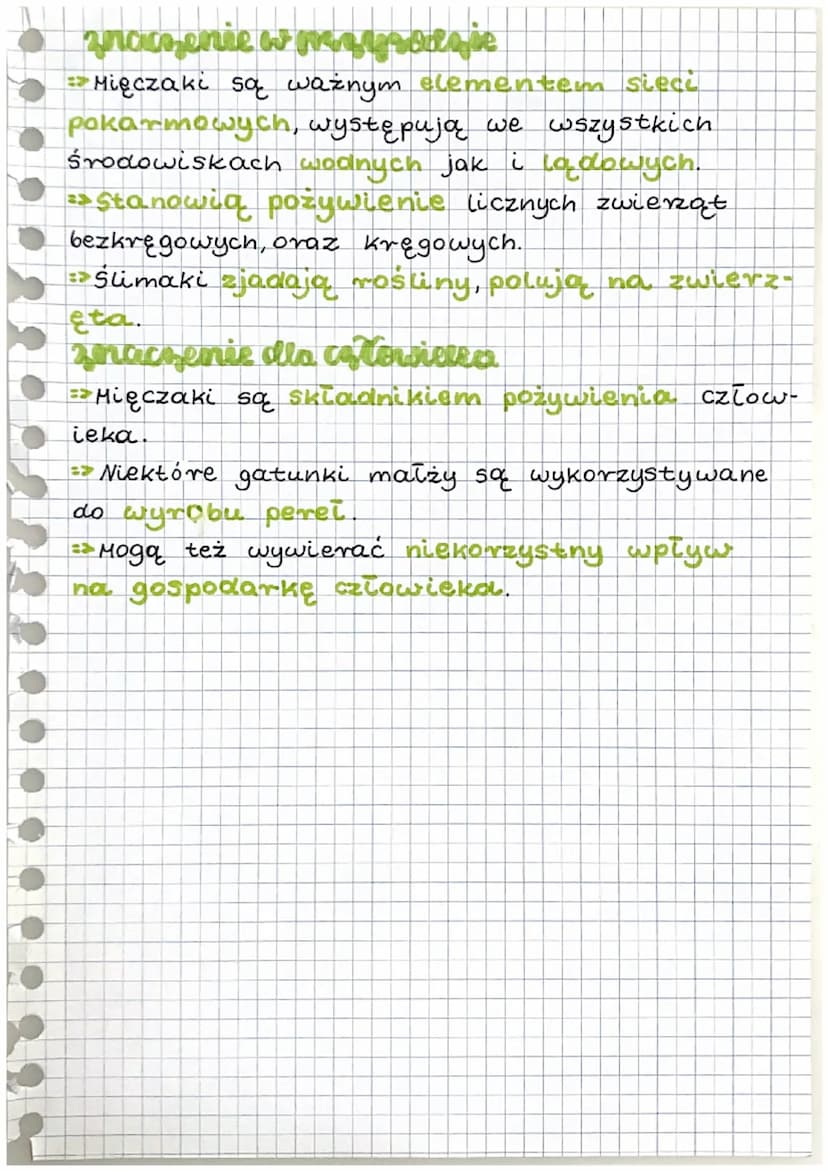 znaczenie w przyrodzie
=> Mięczaki są ważnym elementem sieci
pokarmowych, występują we wszystkich
środowiskach wodnych jak i lądowych.
=> Stanowią pożywienie licznych zwierząt
bezkręgowych, oraz kręgowych.
=> Ślimaki zjadają rośliny, polują na zwierz-
ęta.
znaczenie dla człowieka
=> Mięczaki są składnikiem pożywienia człow-
ieka.
=> Niektóre gatunki małży są wykorzystywane
do wyrobu pereł.
=> Mogą też wywierać niekorzystny wpływ
na gospodarkę człowieka.